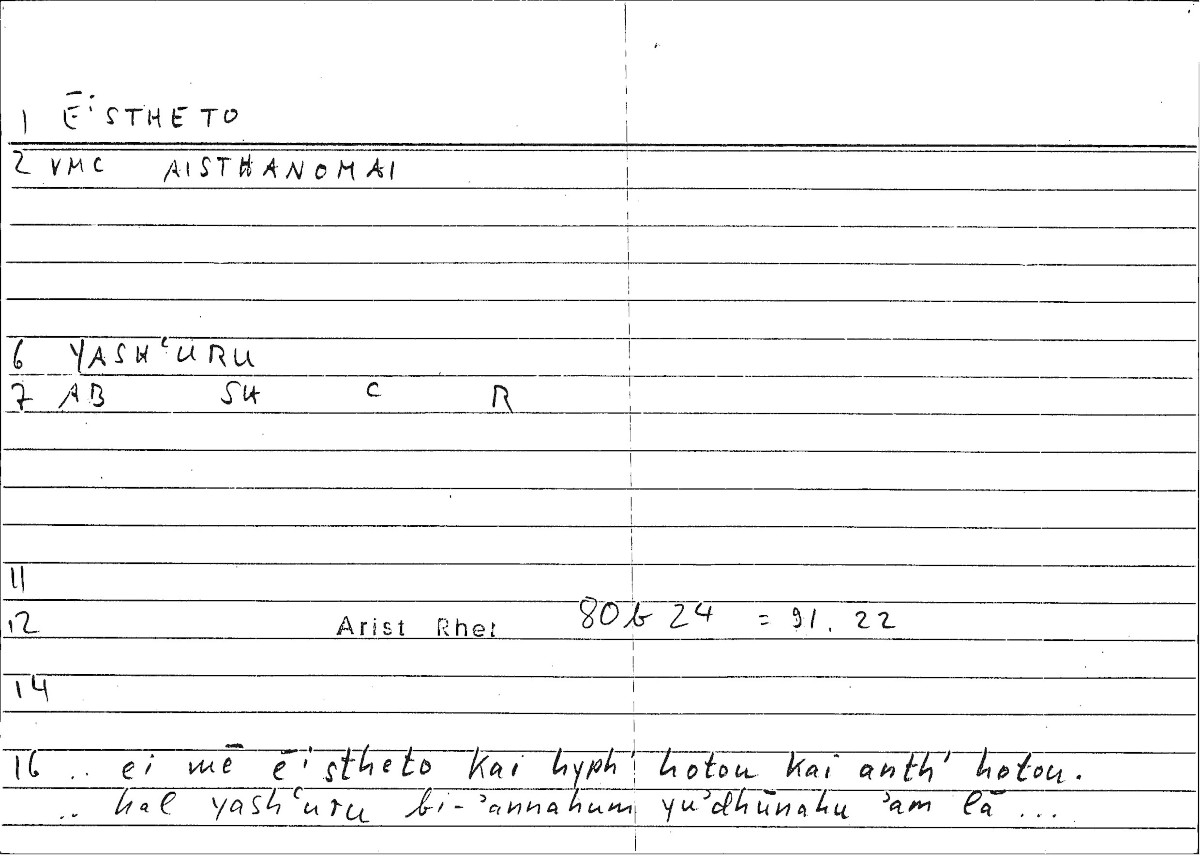 1 Ē'STHETO
2 VMC AISTHANOMAI
6 YASHʿURU
7 AB SH C R
11
12 Arist Rhet 80b24 = 91.22
14
16 .. ei mē ē'stheto kai hyph' hotou kai anth' hotou.
.. hal yashʿuru bi-ʾannahum yuʾdhūnahu ʾam lā ...